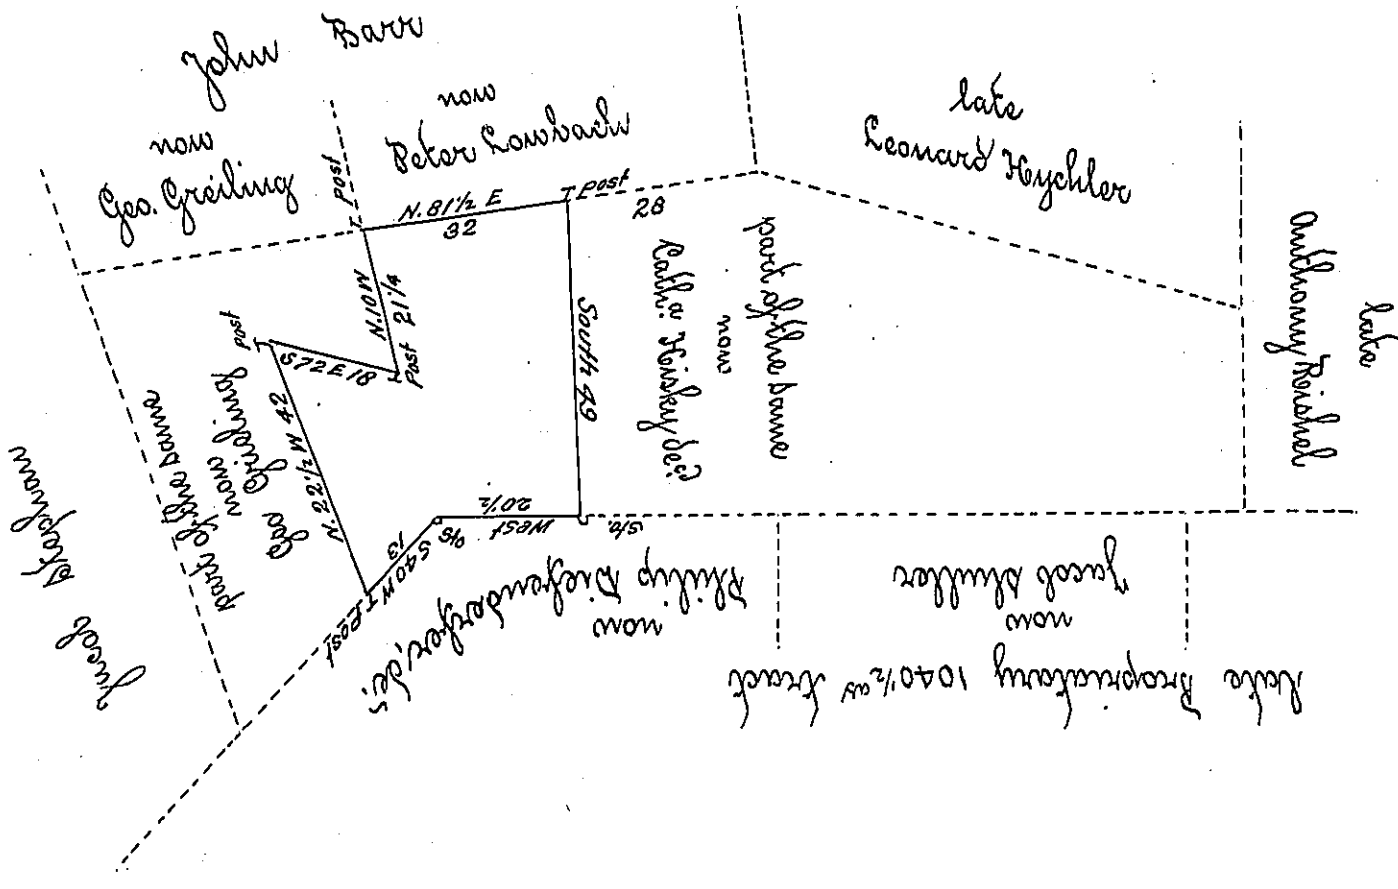 John Barr
now
Geo. Greiling
now
Peter Lowbach
late
Leonard Hychler
late
Anthony Reishel
Post
N. 81½ E
32
Post
28
N. 10 W
21¼
Post
S 72 E 18
Post
N. 22½ W 42
South 49
part of the same
now
Cath: Heisky
part of the same
now
Geo Greiling
Jacob Stephan
West
20½
S 40 W
13
Post
sto.
Philip Diefenderfer, de:
now
Jacob Shuller
now
late Propriatary 1040½ as tract